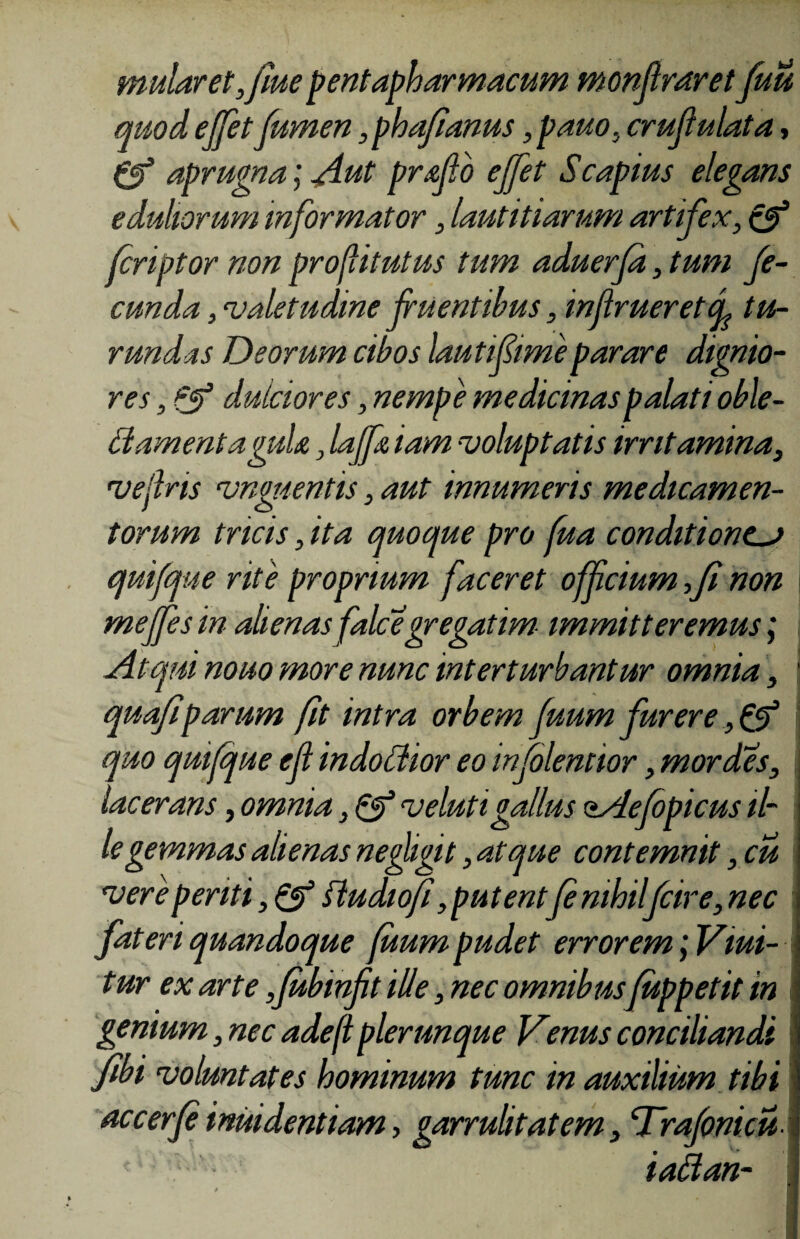 mularet, ſiue pentapharmacum monſtraret ſuū
quod eſſet ſumen, phaſianus, pauo, cruſtulata,
& aprugna; Aut præſto eſſet Scapius elegans
eduliorum informator, lautitiarum artifex, &
ſcriptor non proſtitutus tum aduerſa, tum ſe-
cunda, valetudine fruentibus, inſtrueretq́ tu-
rundas Deorum cibos lautiſsimè parare dignio-
res, & dulciores, nempè medicinas palati oble-
ctamenta gulæ, laſſæ iam voluptatis irritamina,
veſtris vnguentis, aut innumeris medicamen-
torum tricis, ita quoque pro ſua conditione
quiſque ritè proprium faceret officium, ſi non
meſſes in alienas falcē gregatim immitteremus;
Atqui nouo more nunc interturbantur omnia,
quaſi parum ſit intra orbem ſuum furere, &
quo quiſque eſt indoctior eo inſolentior, mordēs,
lacerans, omnia, & veluti gallus Aeſopicus il-
le gemmas alienas negligit, atque contemnit, cū
verè periti, & ſtudioſi, putent ſe nihil ſcire, nec
fateri quandoque ſuum pudet errorem; Viui-
tur ex arte, ſubinſit ille, nec omnibus ſuppetit in
genium, nec adeſt plerunque Venus conciliandi
ſibi voluntates hominum tunc in auxilium tibi
accerſe inuidentiam, garrulitatem, Traſonicū
iactan-